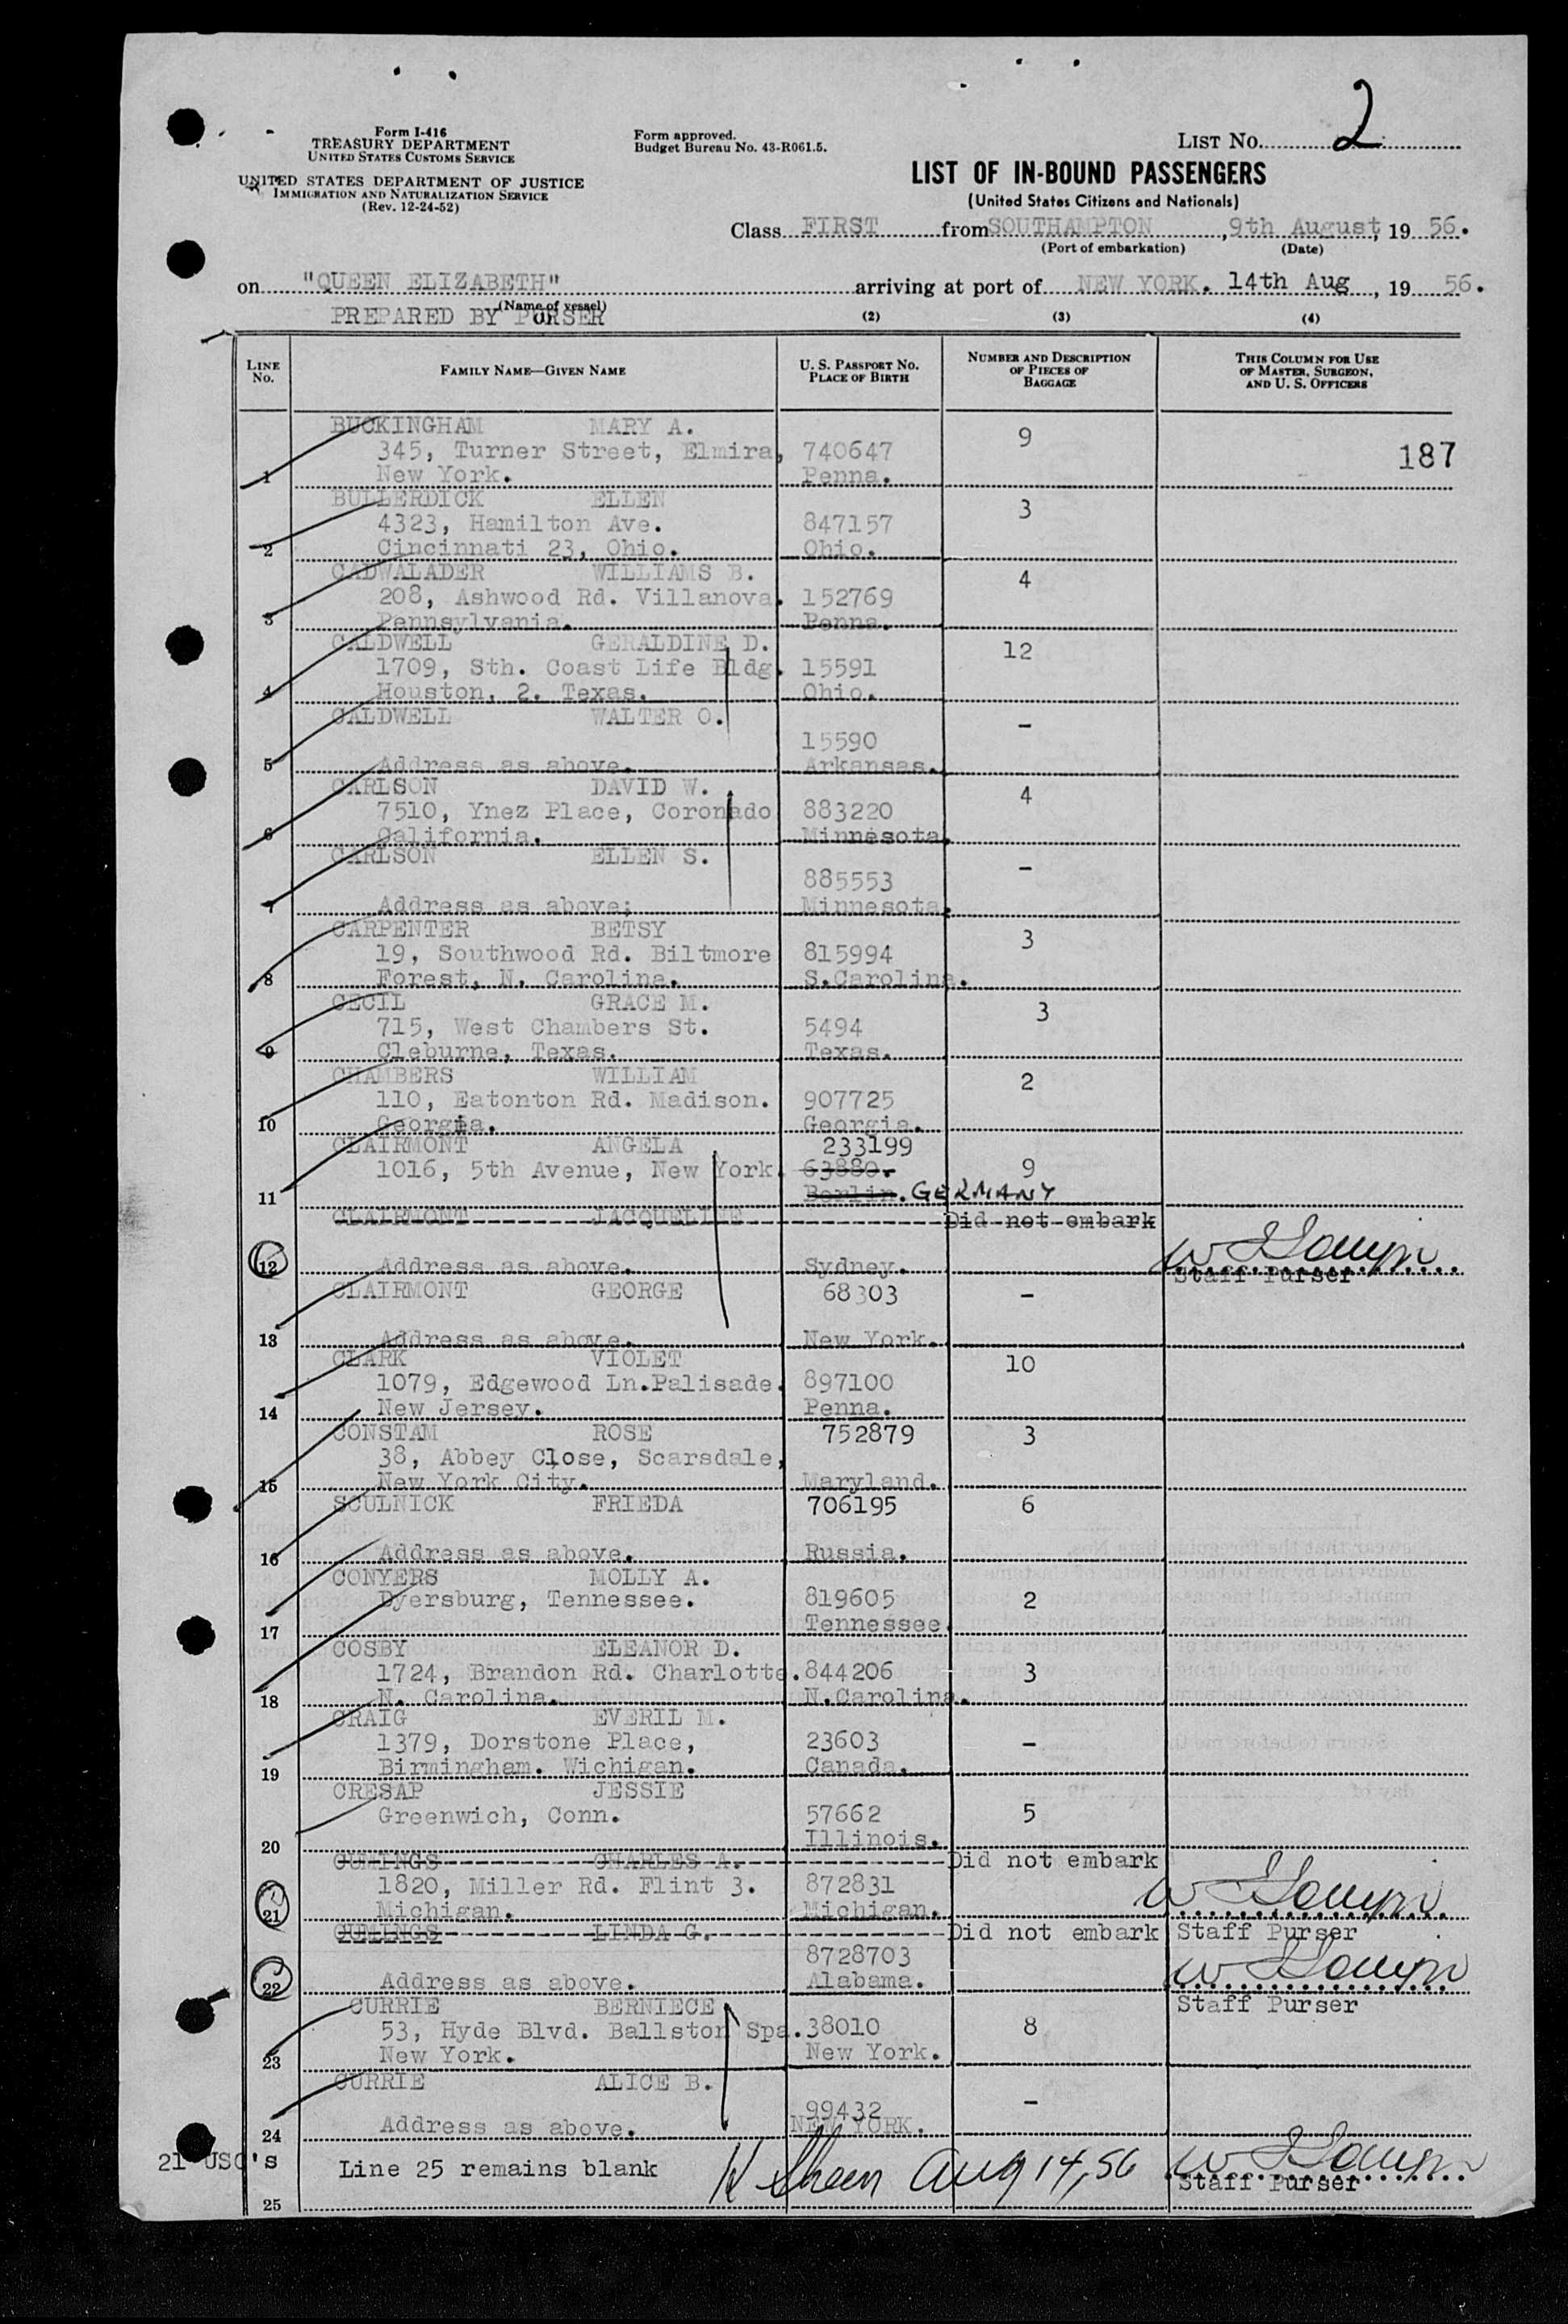 Form I-416
TREASURY DEPARTMENT
UNITED STATES CUSTOMS SERVICE
UNITED STATES DEPARTMENT OF JUSTICE
IMMIGRATION AND NATURALIZATION SERVICE
(Rev. 12-24-52)
Form approved.
Budget Bureau No. 43-R061.5.
LIST No. 2
LIST OF IN-BOUND PASSENGERS
(United States Citizens and Nationals)
Class FIRST from SOUTHAMPTON, 9th August, 19 56.
(Port of embarkation) (Date)
on "QUEEN ELIZABETH" arriving at port of NEW YORK. 14th Aug, 19 56.
(Name of vessel)
PREPARED BY PURSER
(2) (3) (4)
LINE No. FAMILY NAME—GIVEN NAME U. S. PASSPORT NO. PLACE OF BIRTH NUMBER AND DESCRIPTION OF PIECES OF BAGGAGE THIS COLUMN FOR USE OF MASTER, SURGEON, AND U. S. OFFICERS
BUCKINGHAM MARY A. 9
345, Turner Street, Elmira, 740647 187
1 New York. Penna.
BULLERDICK ELLEN 3
4323, Hamilton Ave. 847157
2 Cincinnati 23, Ohio. Ohio.
CADWALADER WILLIAMS B. 4
208, Ashwood Rd. Villanova. 152769
3 Pennsylvania. Penna.
CALDWELL GERALDINE D. 12
1709, Sth. Coast Life Bldg. 15591
4 Houston, 2. Texas. Ohio.
CALDWELL WALTER O. -
15590
5 Address as above. Arkansas.
CARLSON DAVID W. 4
7510, Ynez Place, Coronado 883220
6 California. Minnesota.
CARLSON ELLEN S. -
885553
7 Address as above; Minnesota.
CARPENTER BETSY 3
19, Southwood Rd. Biltmore 815994
8 Forest, N. Carolina. S.Carolina.
CECIL GRACE M. 3
715, West Chambers St. 5494
9 Cleburne, Texas. Texas.
CHAMBERS WILLIAM 2
110, Eatonton Rd. Madison. 907725
10 Georgia. Georgia.
CLAIRMONT ANGELA 233199
1016, 5th Avenue, New York. 63880. 9
11 Berlin. GERMANY
CLAIRMONT JACQUELINE Did not embark
12 Address as above. Sydney.
Staff Purser
CLAIRMONT GEORGE 68303 -
13 Address as above. New York.
CLARK VIOLET 10
1079, Edgewood Ln.Palisade. 897100
14 New Jersey. Penna.
CONSTAM ROSE 752879 3
38, Abbey Close, Scarsdale,
15 New York City. Maryland.
SCULNICK FRIEDA 706195 6
16 Address as above. Russia.
CONYERS MOLLY A.
Dyersburg, Tennessee. 819605 2
17 Tennessee.
COSBY ELEANOR D.
1724, Brandon Rd. Charlotte. 844206 3
18 N. Carolina. N.Carolina.
CRAIG EVERIL M.
1379, Dorstone Place, 23603 -
19 Birmingham. Wichigan. Canada.
CRESAP JESSIE
Greenwich, Conn. 57662 5
20 Illinois.
CUMINGS CHARLES A. Did not embark
1820, Miller Rd. Flint 3. 872831
21 Michigan. Michigan.
CUMINGS LINDA G. Did not embark Staff Purser
8728703
22 Address as above. Alabama.
CURRIE BERNIECE Staff Purser
53, Hyde Blvd. Ballston Spa. 38010 8
23 New York. New York.
CURRIE ALICE B.
99432 -
24 Address as above. NEW YORK.
21 USC's Line 25 remains blank Aug 14, 56 Staff Purser
25